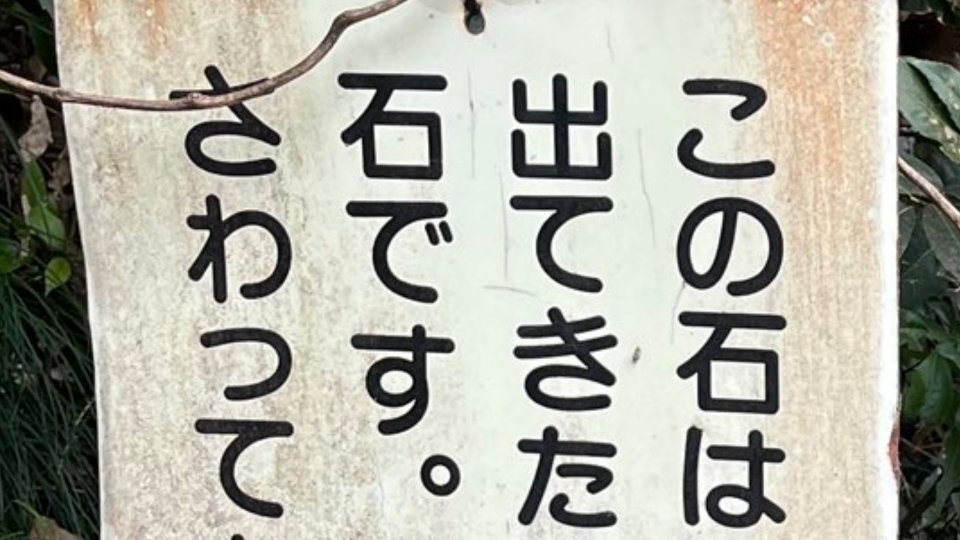 この石は
出てきた
石です。
さわって